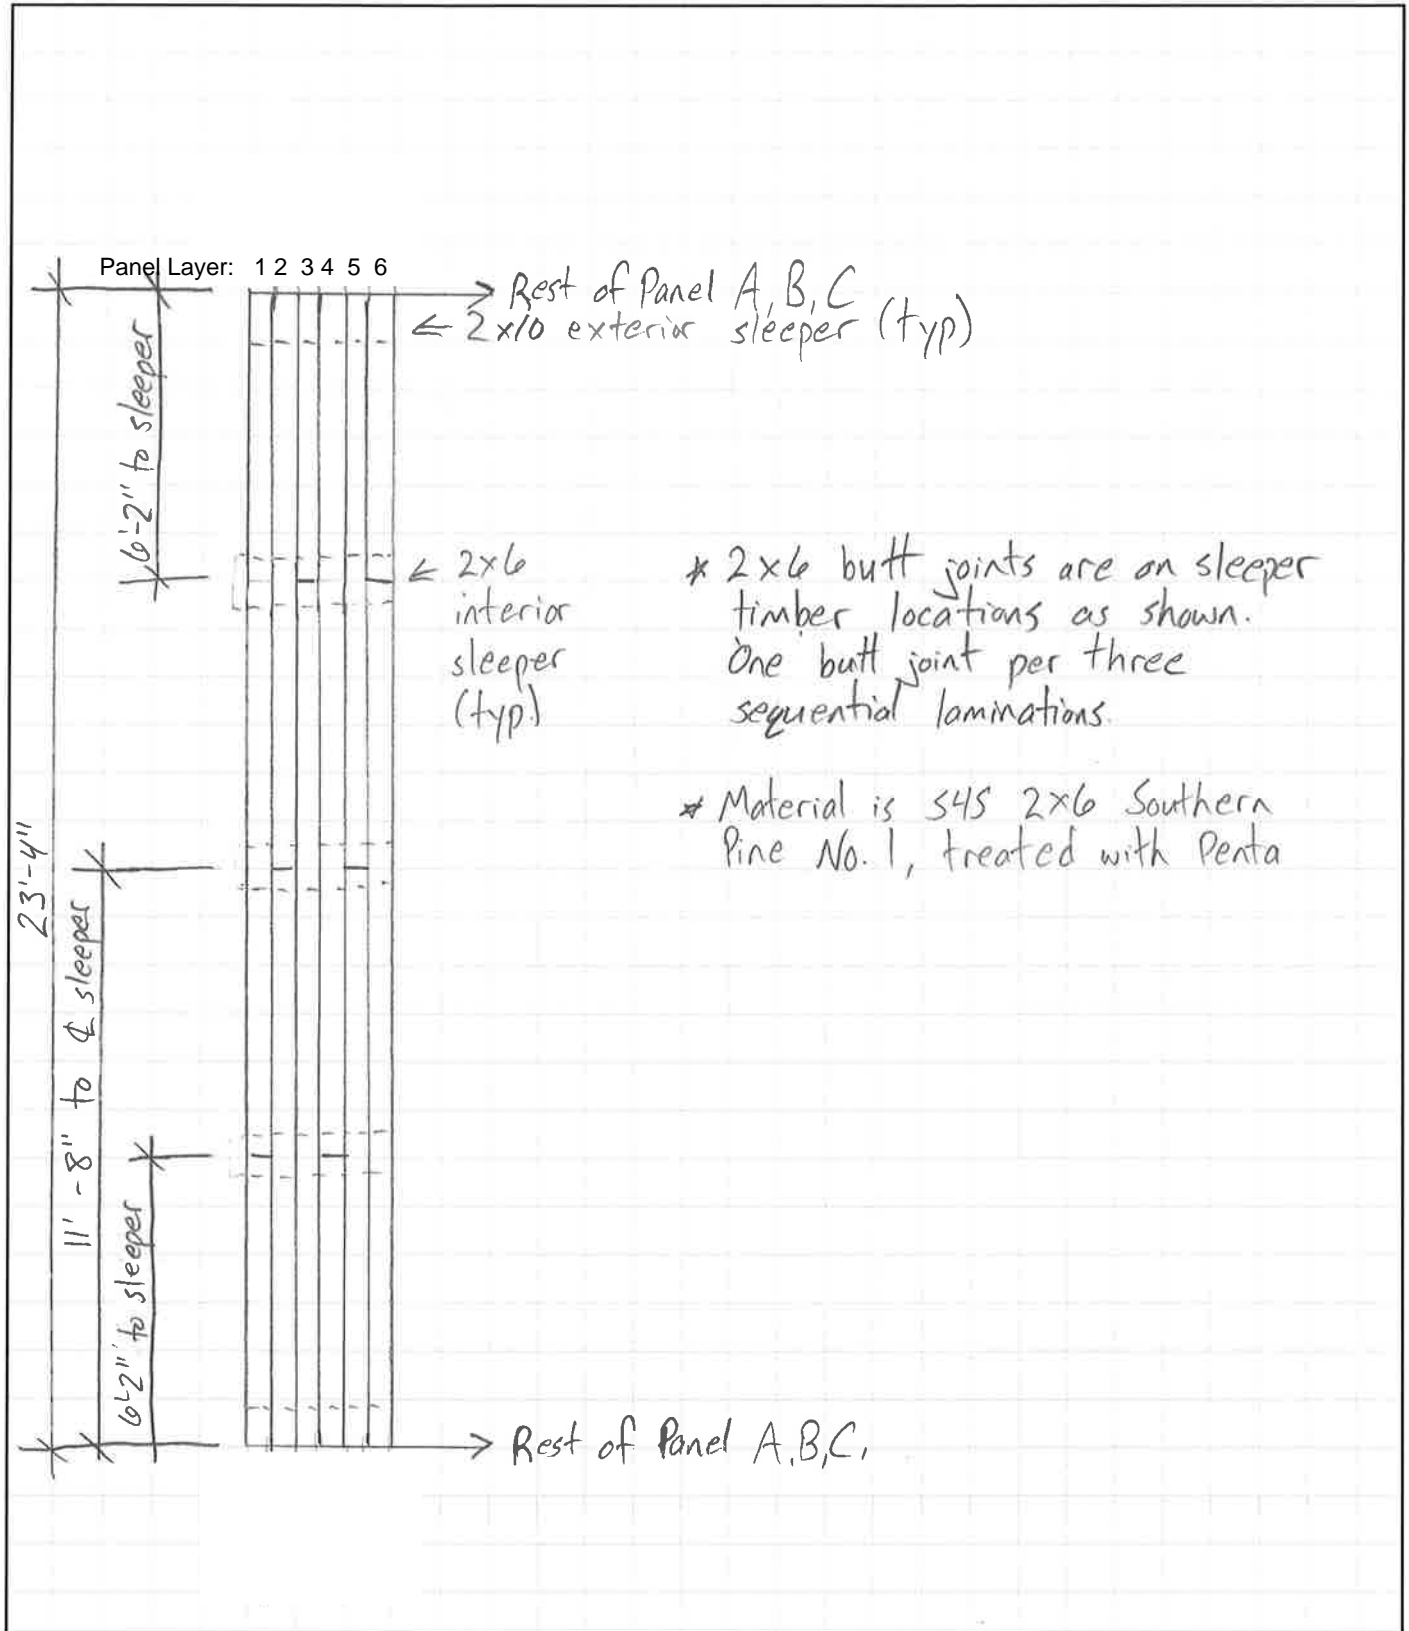 Panel Layer: 1 2 3 4 5 6
Rest of Panel A, B, C
← 2x10 exterior sleeper (typ)
6'-2" to sleeper
← 2x6
interior
sleeper
(typ.)
* 2x6 butt joints are on sleeper
timber locations as shown.
One butt joint per three
sequential laminations.
* Material is S4S 2x6 Southern
Pine No. 1, treated with Penta
23'-4"
11'-8" to ℄ sleeper
6'-2" to sleeper
Rest of Panel A,B,C.